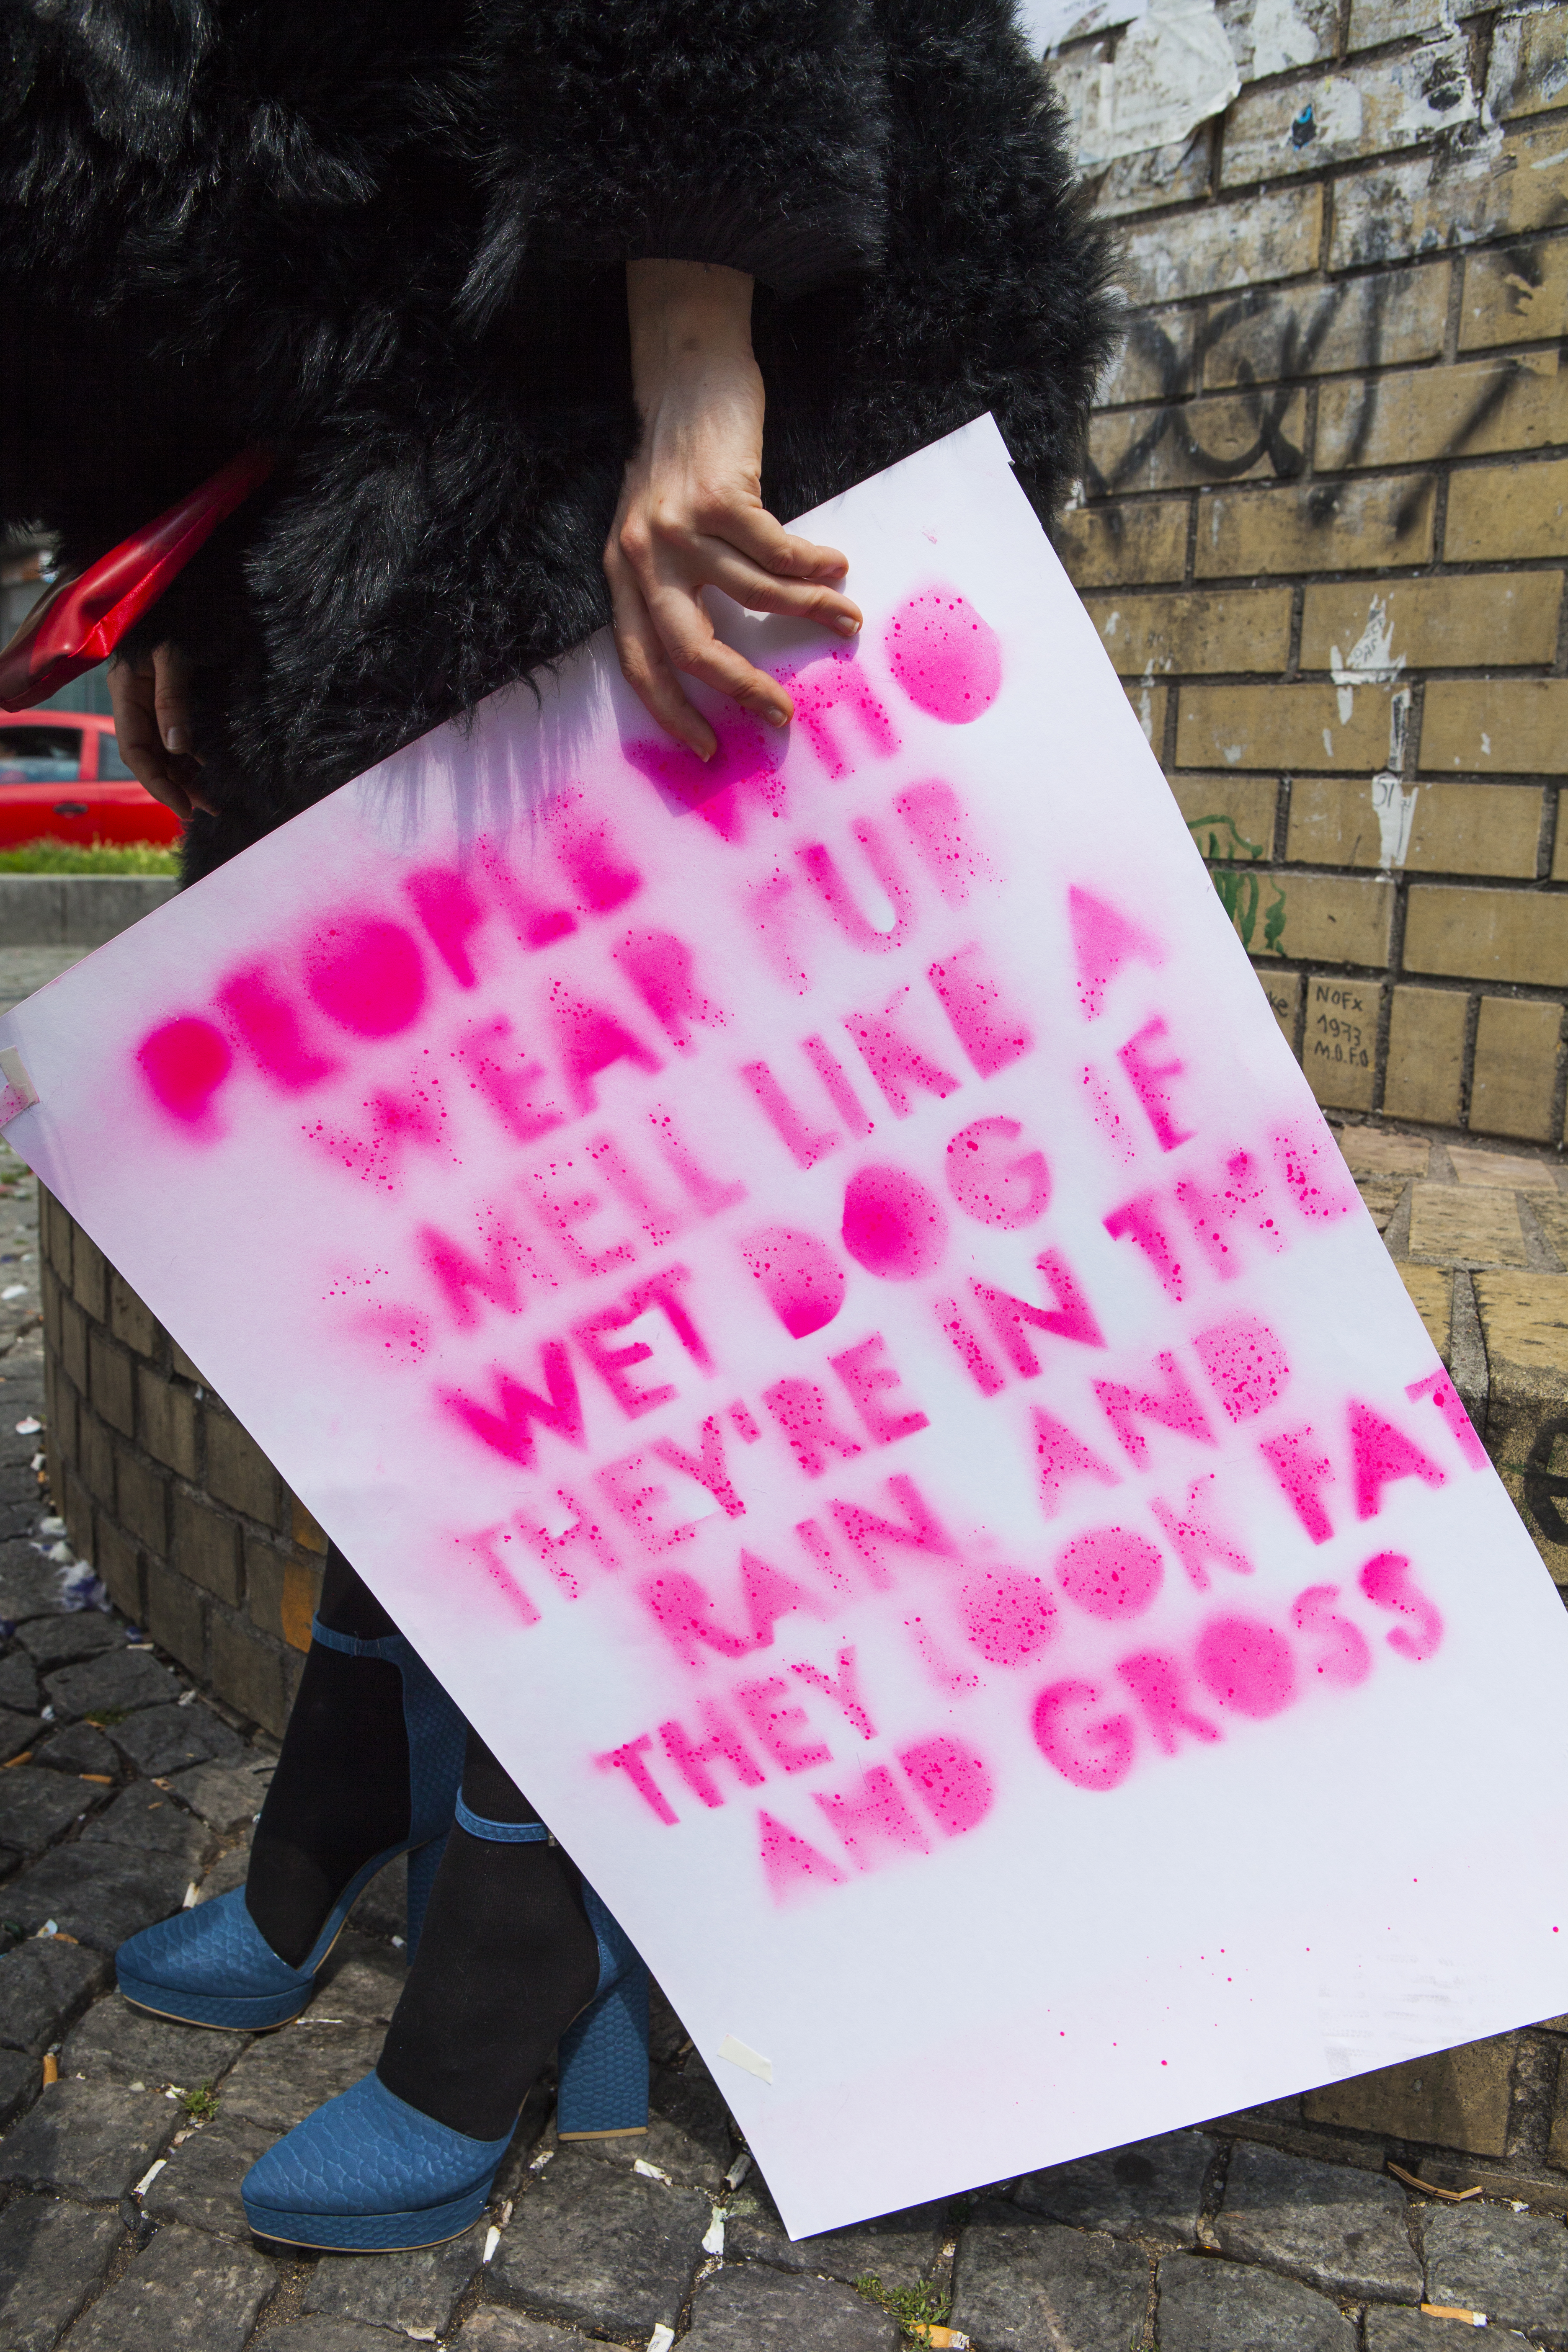 PEOPLE WHO
WEAR FUR
SMELL LIKE A
WET DOG IF
THEY'RE IN THE
RAIN. AND
THEY LOOK FAT
AND GROSS
NOFX
1973
M.O.F.O